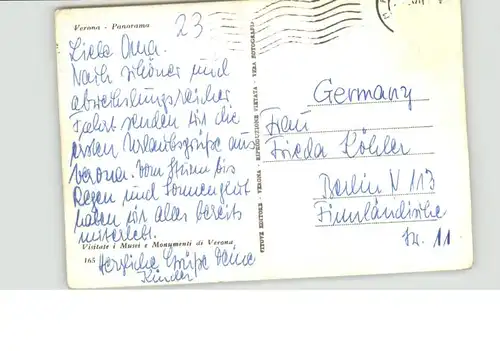 Verona - Panorama
23
Liebe Oma.
Nach schöner und
abwechslungsreicher
Fahrt senden wir die
ersten Urlaubsgrüße aus
Verona. Vom Sturm bis
Regen und Sonnenglut
haben wir alles bereits
miterlebt.
Visitate i Musei e Monumenti di Verona
165 Herzliche Grüße Deine
Kinder
STIUVE EDITORE - VERONA - RIPRODUZIONE VIETATA - VERA FOTOGRAFIA
Germany
Frau
Frieda Köhler
Berlin N 113
Finnländische
Str. 11